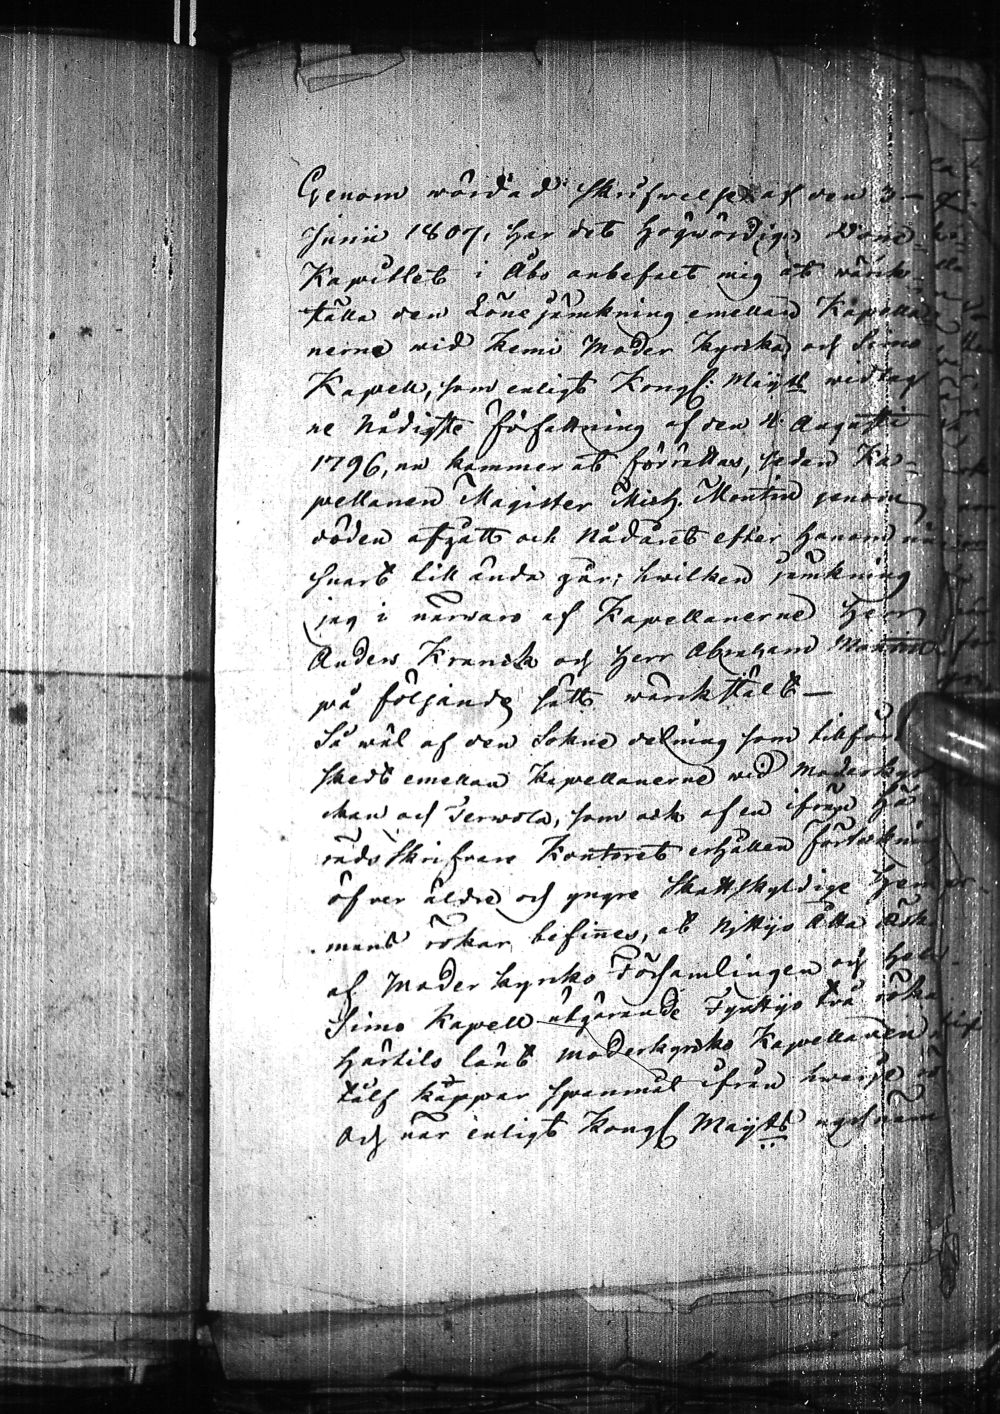 Genom wördad skrifwelse af den 3
Junii 1807, har det Högwördige Dome
Kapitlet i Åbo anbefalt mig at wärk
ställa den Lönejämkning emellan Kapella
nerne wid Kemi Moder kyrka och Simo
Kapell, som enligt Kongl: Maÿts widtag
ne Nådigste författning af den 4 Augusti
1796, nu kommer at förrättas, sedan Ka-
pellanen Magister Mich. Montin genom
döden afgått och Nådåret efter honom nu
snart till ända går; hwilken jemkning
jag i närwaro af Kapellanerne Herr
Anders Kranck och Herr Abraham Montin
på följande sätt wärkstält —
Så wäl af den Sokne delning som tillför
skedt emellan Kapellanerne wid Moderkyr
ckan och Terwola, som ock af en ifrån Hä
radsskrifvare Kontoret erhållen förtekning
öfver äldre och yngre Skattskyldige Hem
mans rökar befinnes, at Nijttijo Åtta Rök
af Moder kyrko Församlingen och hela
Simo Kapell utgörande Fyrttijo två röka
härtils lönt Moderkyrko Kapellanen
tålf kappar spanmål ifrån hwarje rö
och när enligt Kongl Maÿts